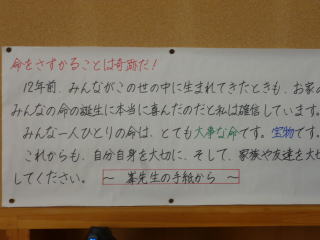 命をさずかることは奇跡だ！
12年前、みんながこの世の中に生まれてきたときも、お家の
みんなの命の誕生に本当に喜んだのだと私は確信しています。
みんな一人ひとりの命は、とても大事な命です。宝物です。
これからも、自分自身を大切に、そして、家族や友達を大切
してください。 〜 峯先生の手紙から 〜